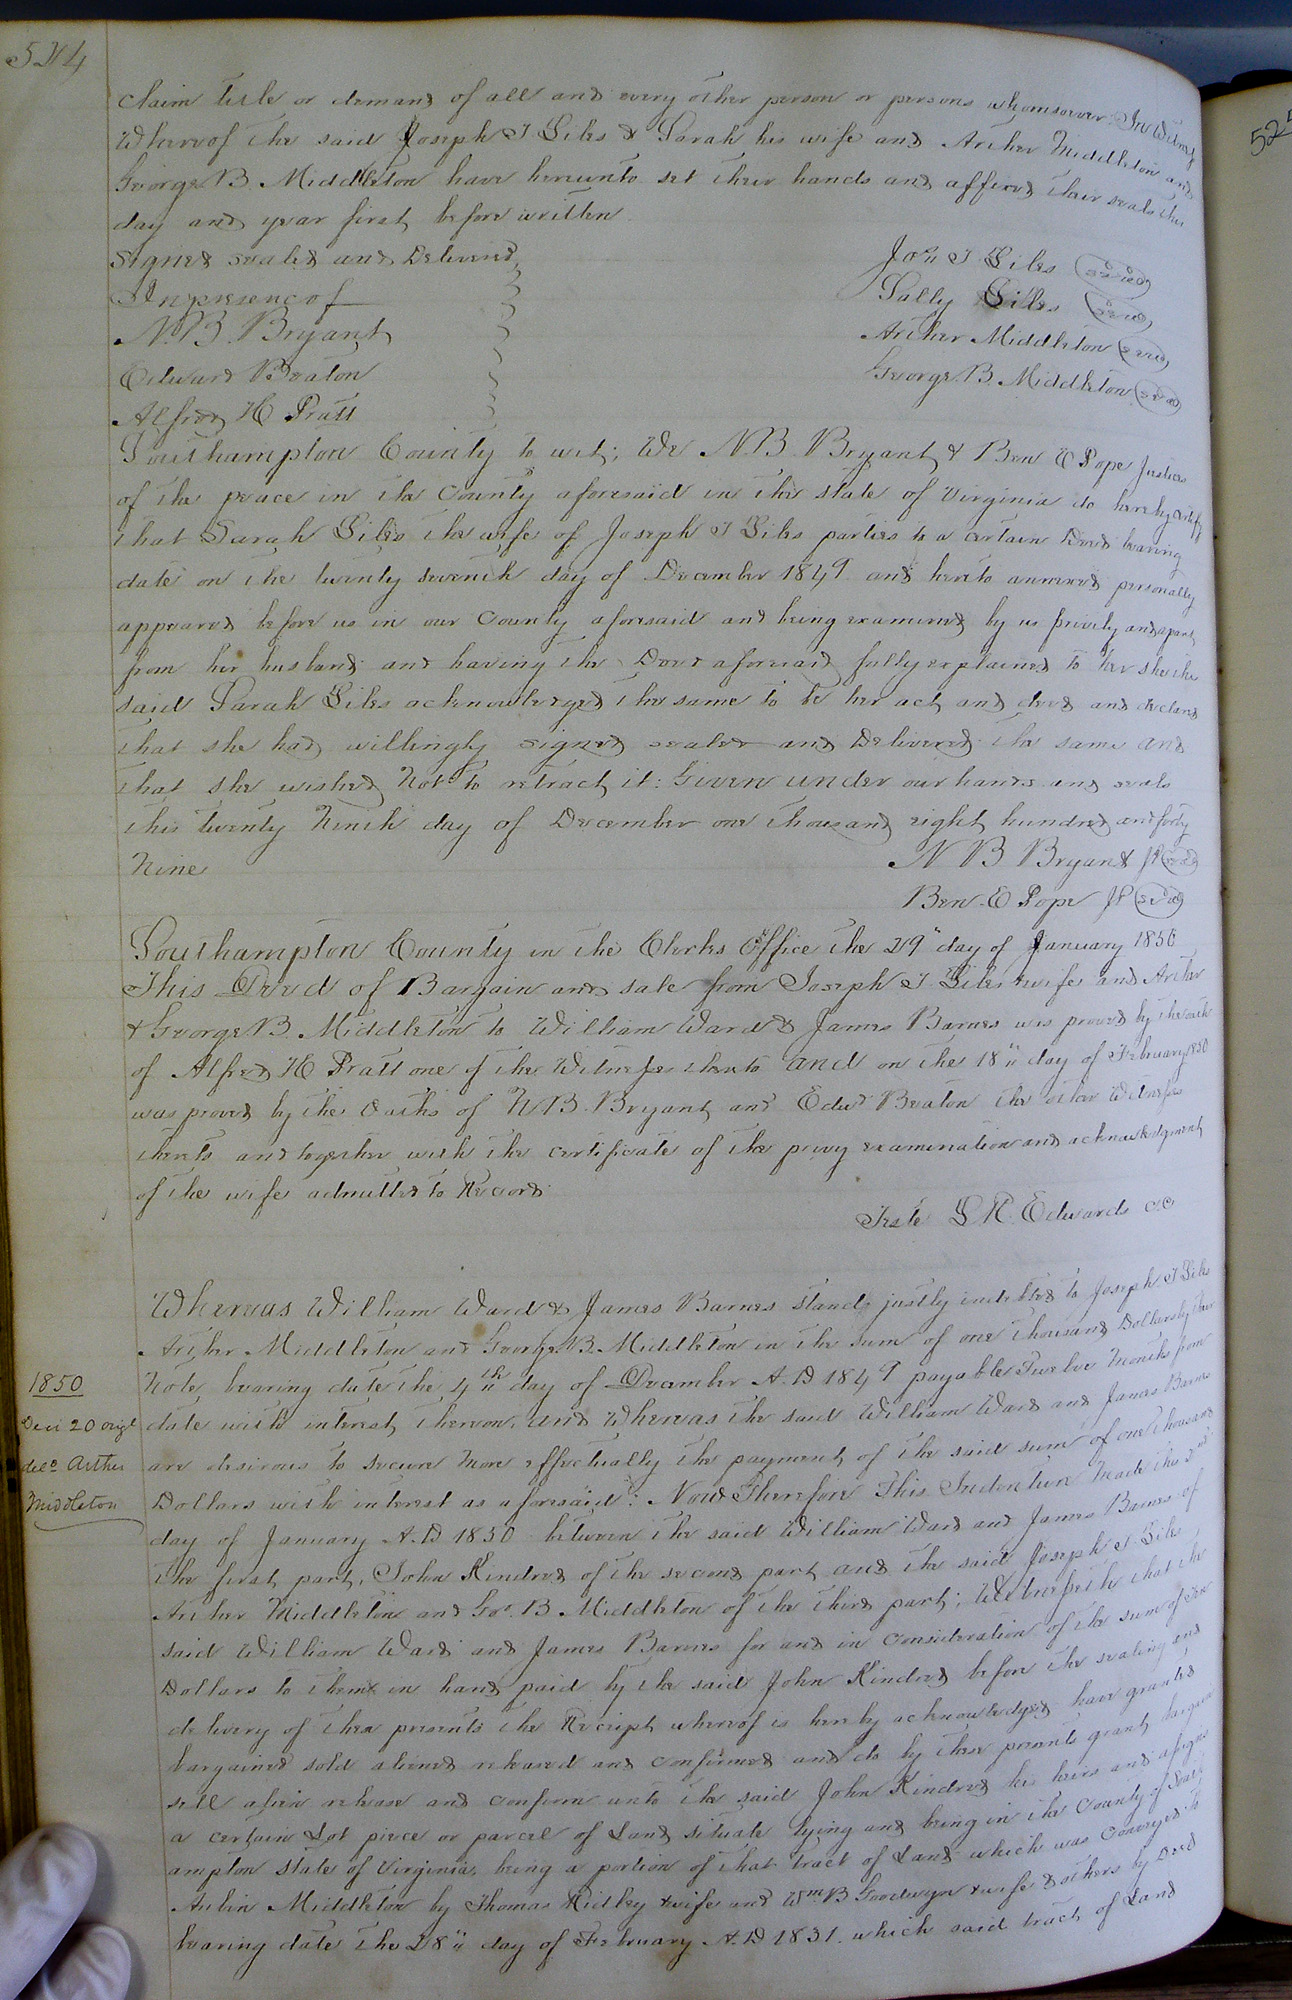 524
claim title or demand of all and every other person or persons whomsoever: In Witness
Whereof the said Joseph T Giles & Sarah his wife and Archer Middleton and
George B. Middleton have hereunto set their hands and affixed their seals this
day and year first before written.
Signed sealed and Delivered
In presence of
N. B. Bryant
Edward Beaton
Alfred H Pratt
Jos. T Giles (seal)
Sally Giles (seal)
Archer Middleton (seal)
George B. Middleton (seal)
Southampton County to wit; We N. B. Bryant & Ben E Pope Justices
of the peace in the County aforesaid in the state of Virginia do hereby certify
that Sarah Giles the wife of Joseph T Giles parties to a certain Deed bearing
date on the twenty seventh day of December 1849 and hereto annexed personally
appeared before us in our County aforesaid and being examined by us privily and apart
from her husband and having the Deed aforesaid fully explained to her she the
said Sarah Giles acknowledged the same to be her act and deed and declared
that she had willingly signed sealed and Delivered the same and
that she wished Not to retract it: Given under our hands and seals
this twenty Ninth day of December one thousand eight hundred and forty
Nine
N B Bryant JP (seal)
Ben. E Pope JP (seal)
Southampton County in the Clerks Office the 29" day of January 1850
This Deed of Bargain and sale from Joseph T Giles & wife and Archer
& George B. Middleton to William Ward & James Barnes was proved by the oath
of Alfred H Pratt one of the Witnesses thereto and on the 18" day of February 1850
was proved by the Oaths of N. B. Bryant and Edwd Beaton the other Witnesses
thereto and together with the certificate of the privy examination and acknowledgment
of the wife admitted to Record
Teste L R. Edwards C.C
Whereas William Ward & James Barnes stand justly indebted to Joseph T Giles
Archer Middleton and George B. Middleton in the sum of one thousand Dollars by their
Note, bearing date the 4th day of December A. D 1849 payable Twelve Months from
date with interest thereon, and Whereas the said William Ward and James Barnes
are desirous to secure more effectually the payment of the said sum of one thousand
Dollars with interest as aforesaid: Now Therefore This Indenture Made this
day of January A. D 1850 between the said William Ward and James Barnes of
the first part, John Kindred of the second part and the said Joseph T Giles
Archer Middleton and Geo. B Middleton of the third part; Witnesseth that the
said William Ward and James Barnes for and in consideration of the sum of
Dollars to them in hand paid by the said John Kindred before the sealing and
delivery of these presents the Receipt whereof is hereby acknowledged have granted
bargained sold aliened released and confirmed and do by these presents grant bargain
sell alien release and confirm unto the said John Kindred his heirs and assigns
a certain Lot piece or parcel of Land situate lying and being in the County of South
ampton State of Virginia, being a portion of that tract of Land which was Conveyed to
Archer Middleton by Thomas Ridley & wife and Wm B Goodwyn & wife & others by Deed
bearing date the 28" day of February A. D 1831. which said tract of Land
1850
Decr 20 origl
deld Arther
Middleton
525